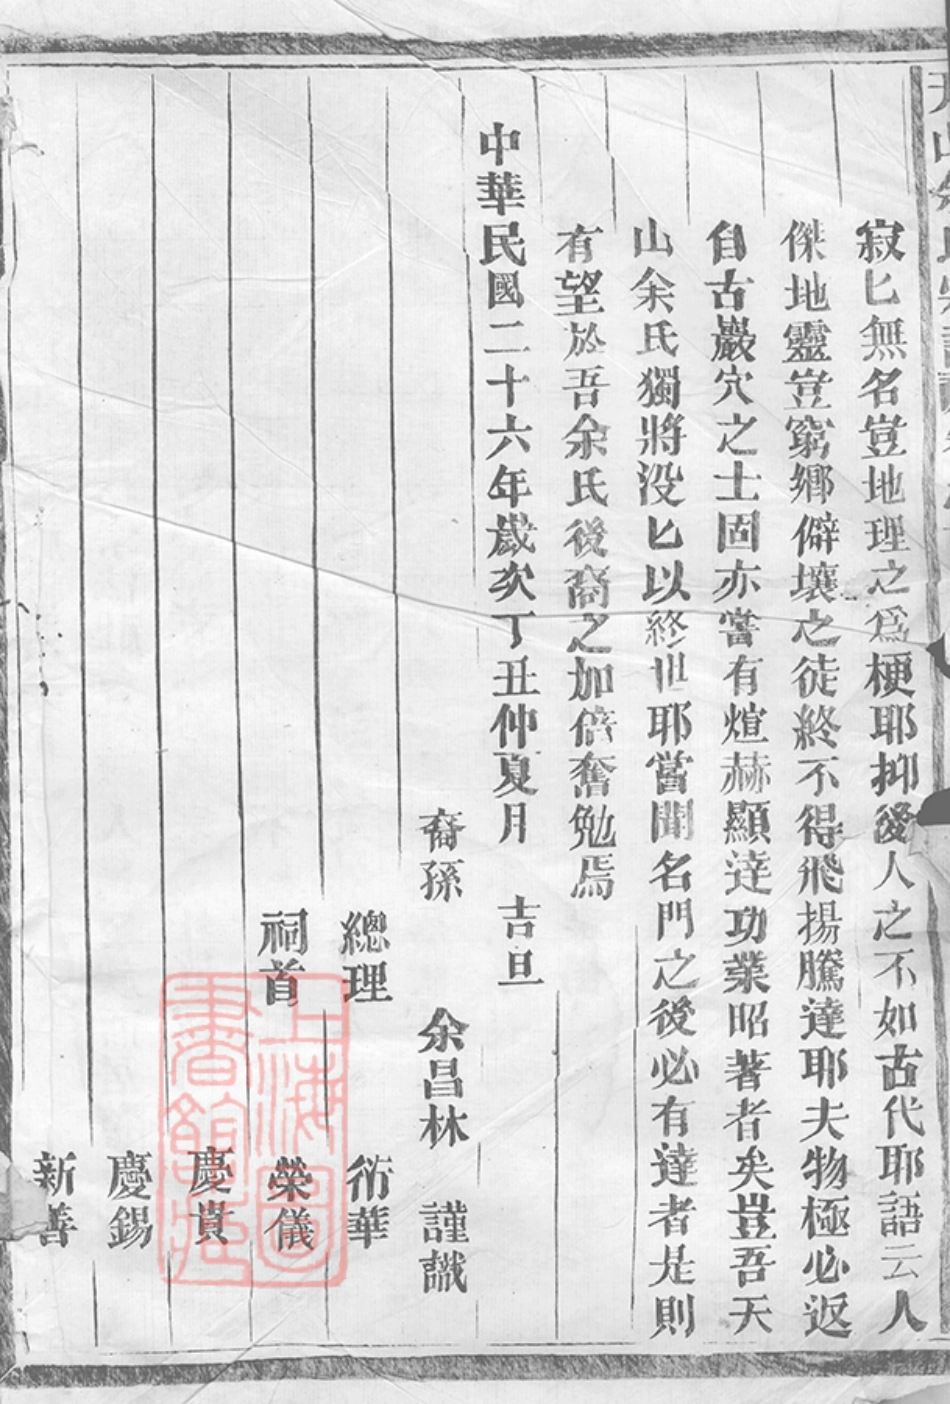 寂匕無名豈地理之爲梗耶抑後人之不如古代耶語云人
傑地靈豈窮鄉僻壤之徒終不得飛揚騰達耶夫物極必返
自古巖穴之士固亦嘗有煊赫顯達功業昭著者矣豈吾天
山余氏獨將没匕以終世耶當聞名門之後必有達者是則
有望於吾余氏後裔之加倍奮勉焉
中華民國二十六年歲次丁丑仲夏月 吉旦
裔孫 余昌林 謹識
總理 衍華
祠首 榮儀
慶貴
慶錫
新善
上海圖書館藏